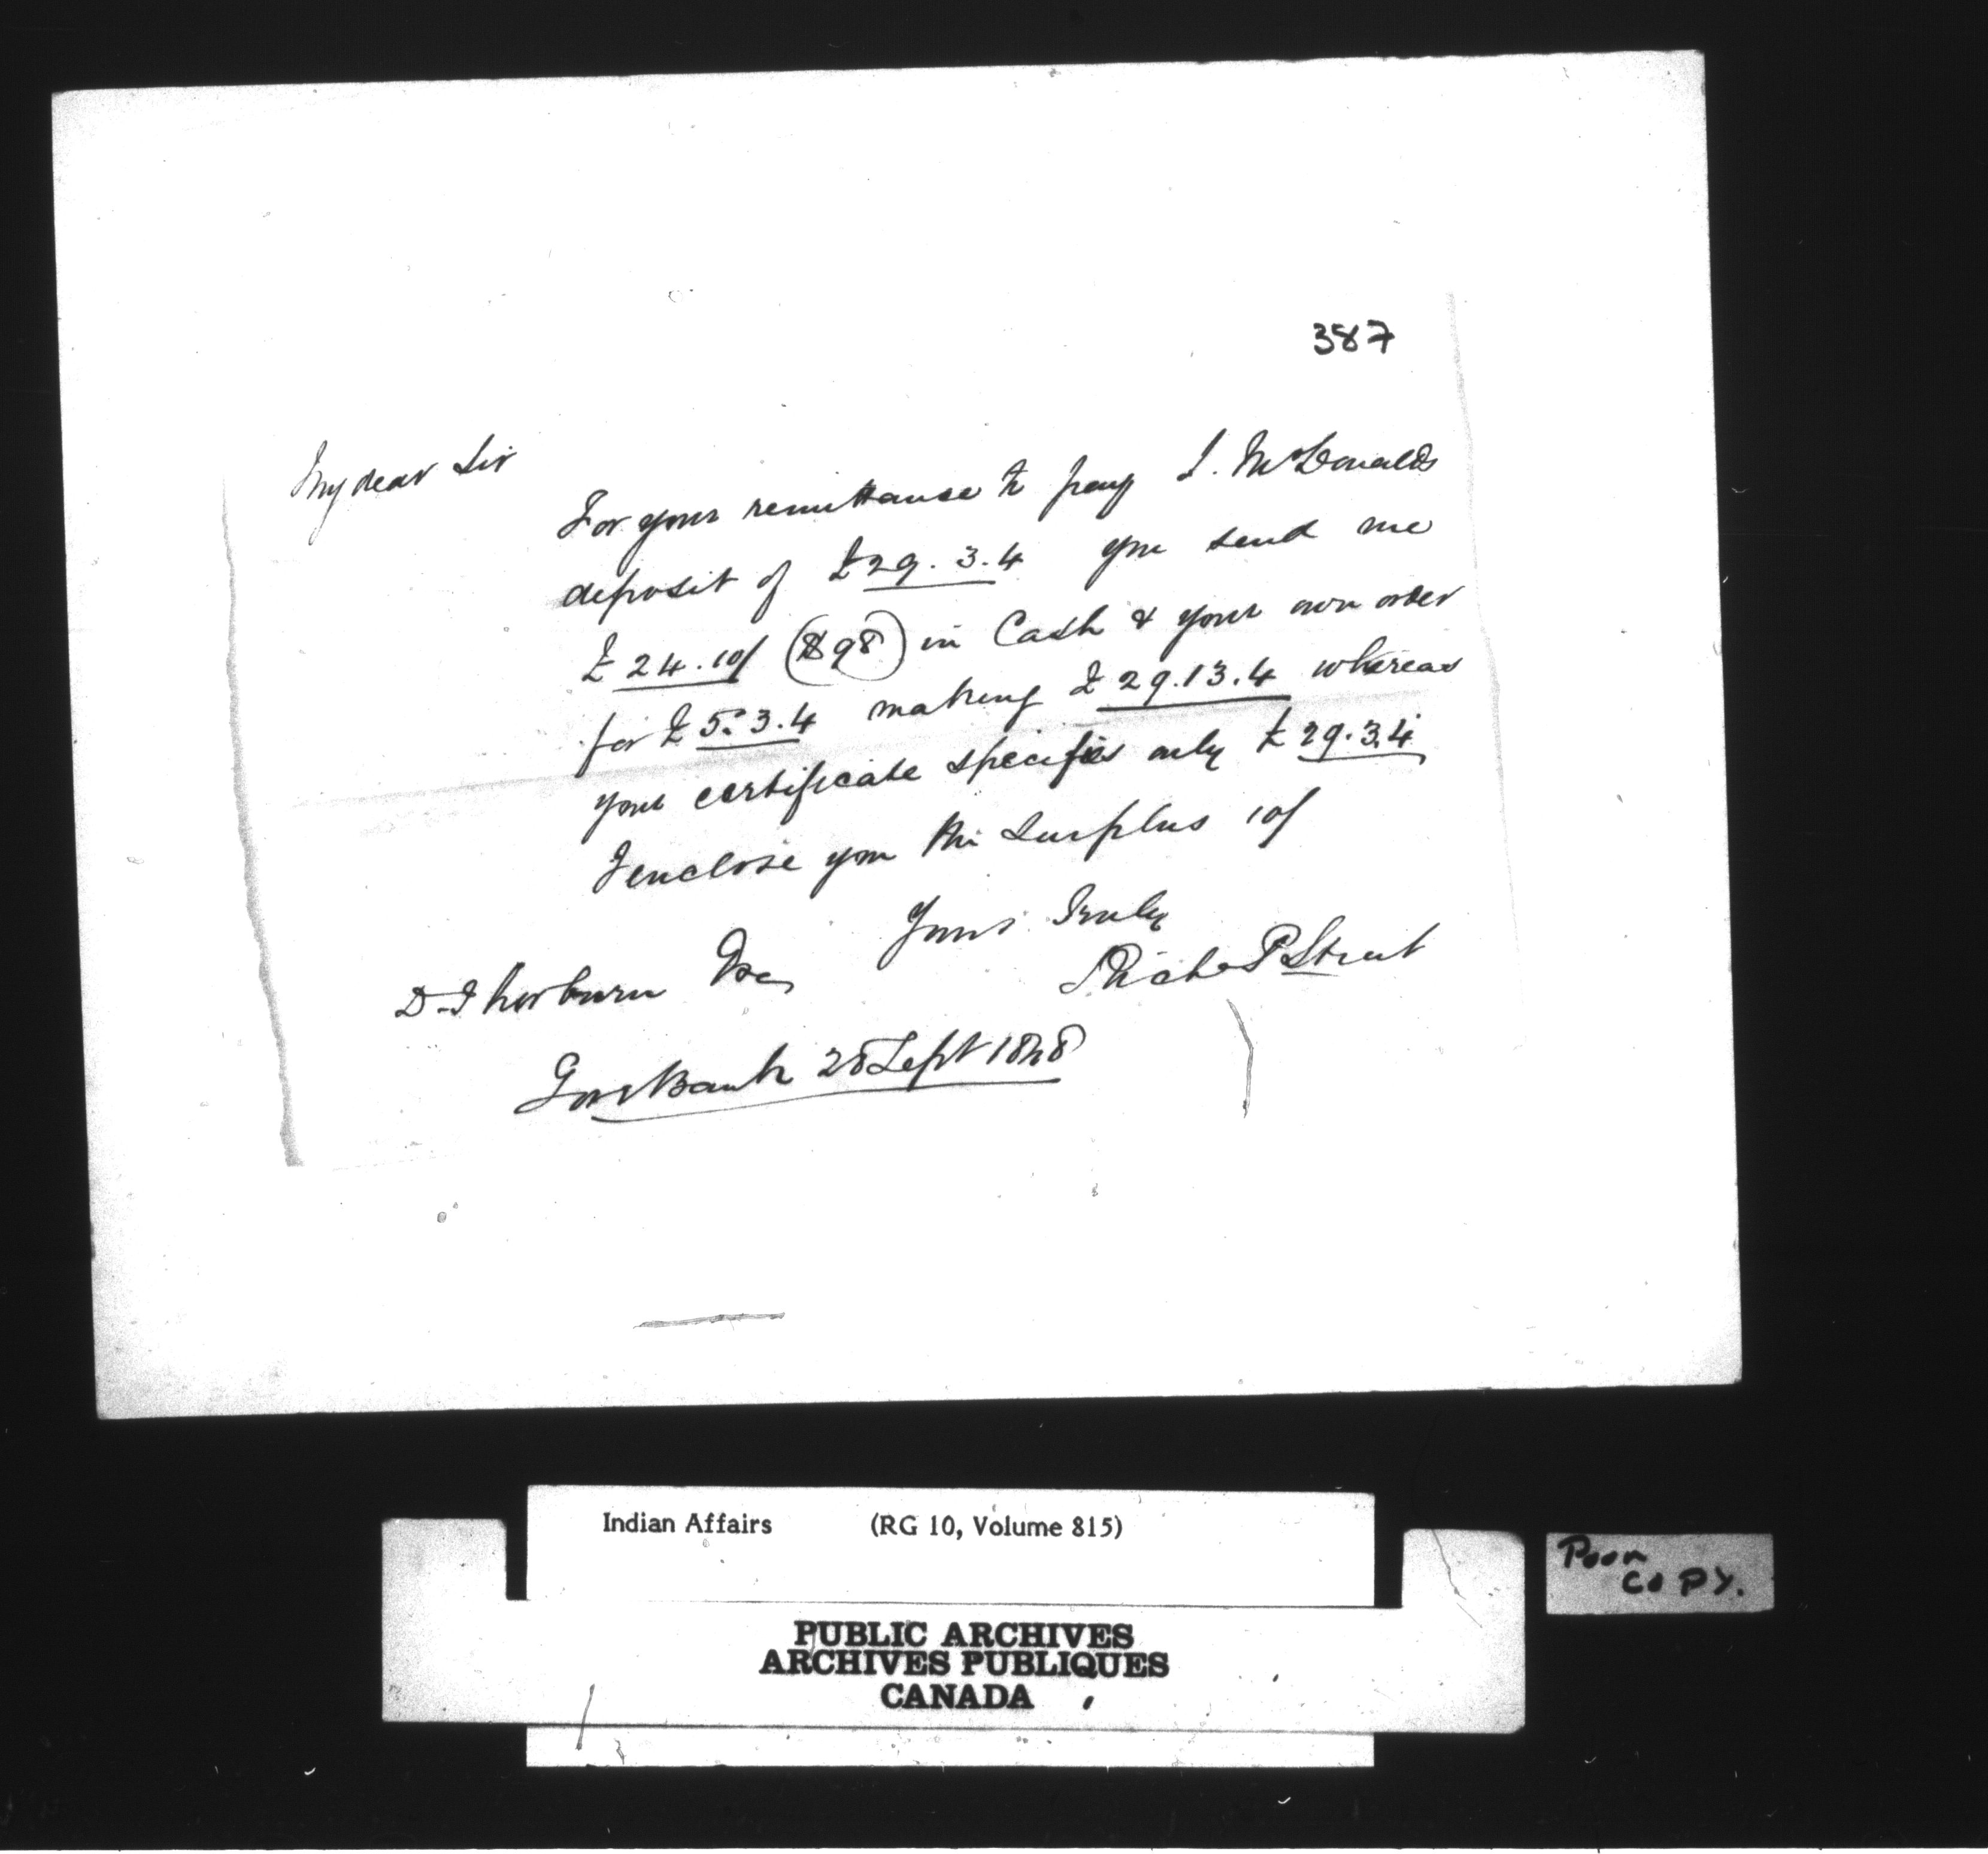 387
My dear Sir
For your remittance to pay J. McDonalds
deposit of £29.3.4 you send me
£24.10/ ($98) in Cash & your own order
for £5.3.4 making £29.13.4 whereas
your certificate specifies only £29.3.4
I enclose you the surplus 10/
Yours Truly
Richd P Street
D. Thorburn Esq
Gore Bank 28 Sept 1848
Indian Affairs (RG 10, Volume 815)
Poor
COPY.
PUBLIC ARCHIVES
ARCHIVES PUBLIQUES
CANADA